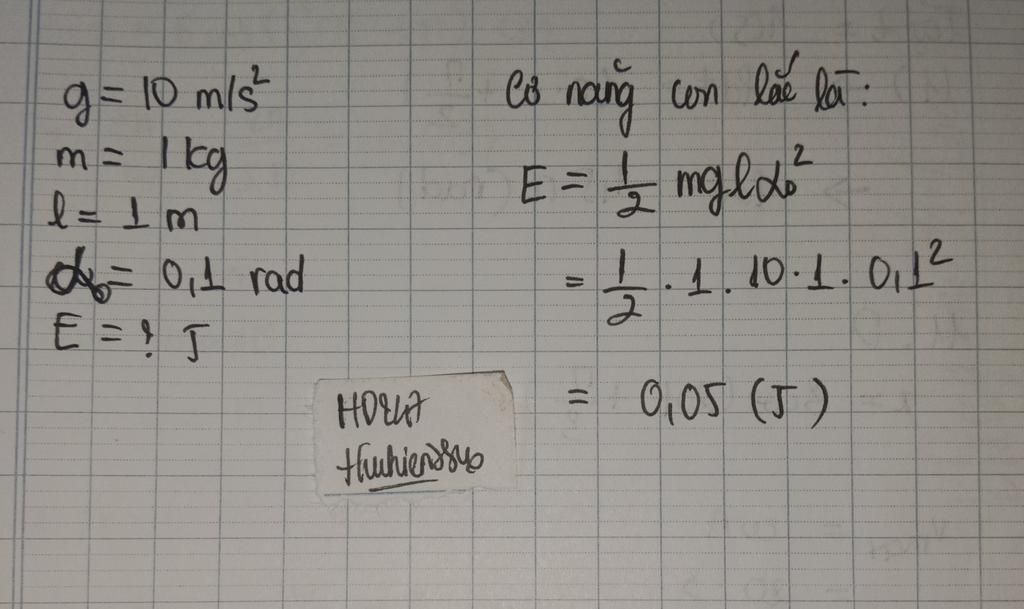 g = 10 m/s²
m = 1 kg
l = 1 m
α₀ = 0,1 rad
E = ? J
Cơ năng con lắc là:
E = 1/2 mglα₀²
= 1/2 . 1 . 10 . 1 . 0,1²
= 0,05 (J)
HD247